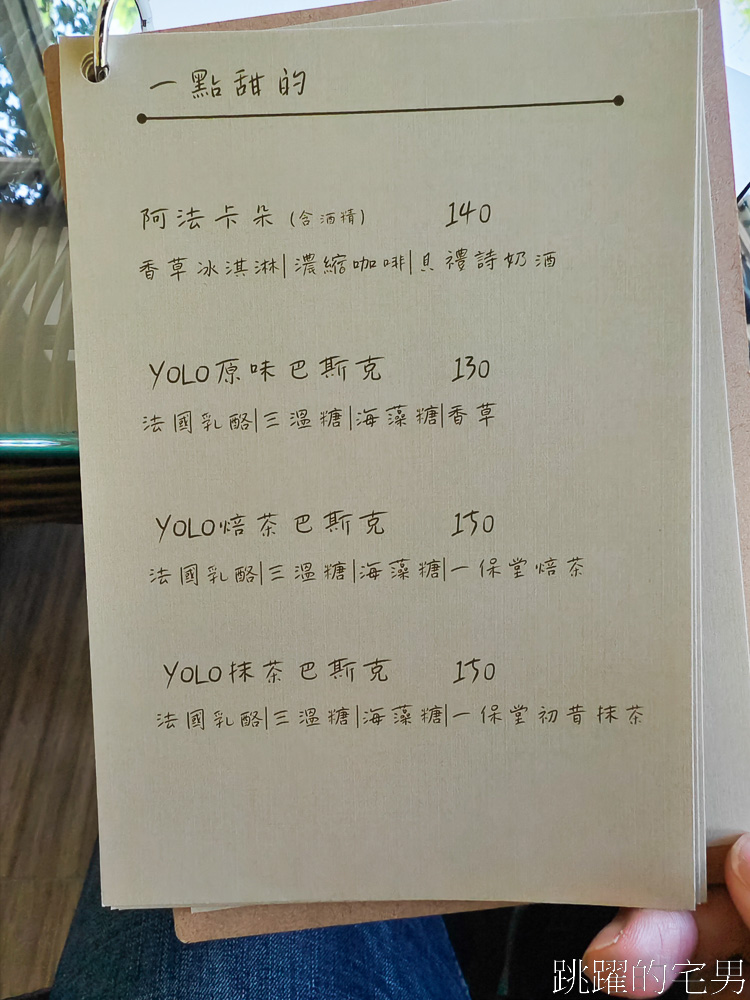 一點甜的
阿法卡朵(含酒精) 140
香草冰淇淋|濃縮咖啡|貝禮詩奶酒
YOLO原味巴斯克 130
法國乳酪|三溫糖|海藻糖|香草
YOLO焙茶巴斯克 150
法國乳酪|三溫糖|海藻糖|一保堂焙茶
YOLO抹茶巴斯克 150
法國乳酪|三溫糖|海藻糖|一保堂初昔抹茶
跳躍的宅男